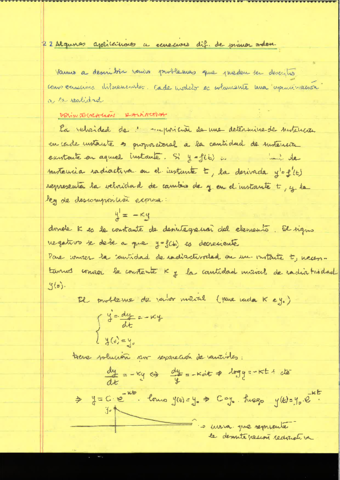 2.2 Algunas aplicaciones a ecuaciones dif. de primer orden
Vamos a describir varios problemas que pueden ser descritos
como ecuaciones diferenciales. Cada modelo es solamente una aproximación
a la realidad.
DESINTEGRACIÓN RADIACTIVA
La velocidad de descomposición de una determinada sustancia
en cada instante es proporcional a la cantidad de sustancia
existente en aquel instante. Si y = f(t)
sustancia radiactiva en el instante t, la derivada y' = f'(t)
representa la velocidad de cambio de y en el instante t, y la
ley de descomposición
y' = -Ky
donde K es la constante de desintegración del elemento. El signo
negativo se debe a que y = f(t) es decreciente.
Para conocer la cantidad de radiactividad en un instante t, necesi-
tamos conocer la constante K y la cantidad inicial de radiactividad
y(0).
El problema de valor inicial (para cada K e y₀)
{ y' = dy/dt = -Ky
y(0) = y₀
tiene solución por separación de variables:
dy/dt = -Ky ⇔ dy/y = -Kdt ⇒ log y = -Kt + cte
⇒ y = C · e^-Kt. Como y(0) = y₀ ⇒ C = y₀. Luego y(t) = y₀ e^-Kt.
y₀
→ curva que representa
la desintegración radiactiva